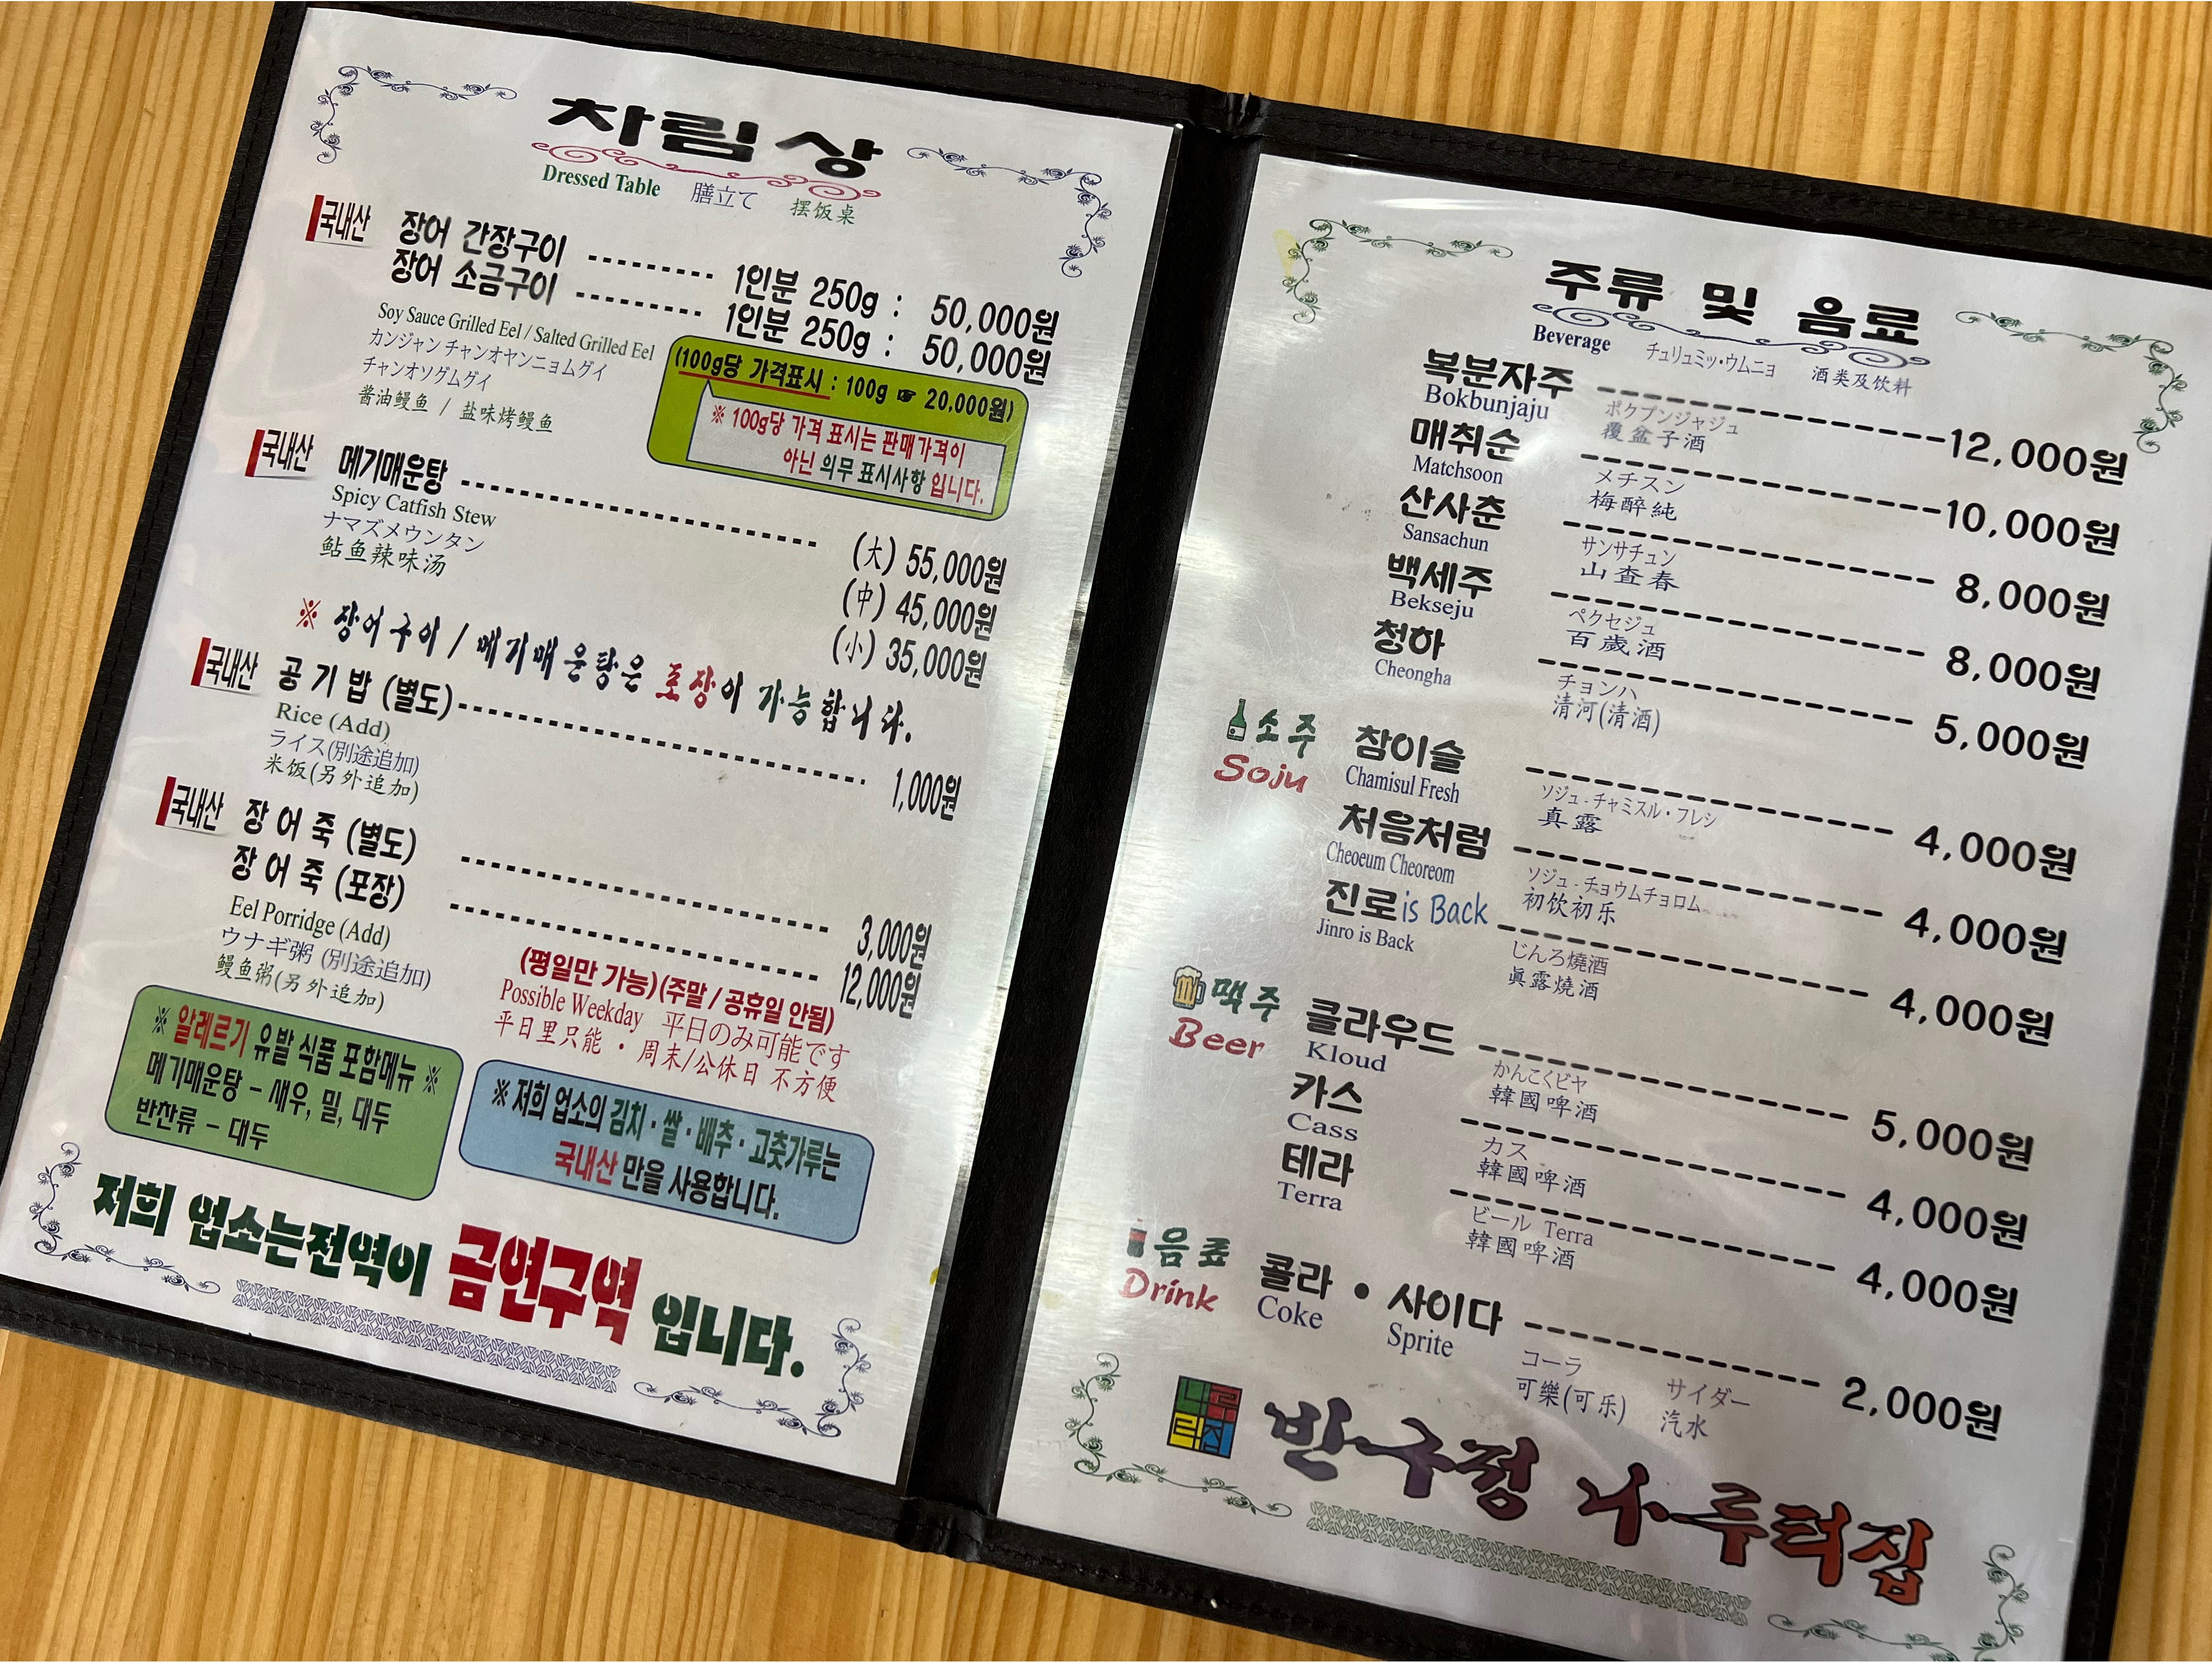 차림상
Dressed Table 膳立て 摆饭桌
국내산 장어 간장구이 1인분 250g : 50,000원
장어 소금구이 1인분 250g : 50,000원
Soy Sauce Grilled Eel / Salted Grilled Eel
カンジャン チャンオヤンニョムグイ
チャンオソグムグイ
酱油鳗鱼 / 盐味烤鳗鱼
(100g당 가격표시 : 100g ☞ 20,000원)
※ 100g당 가격 표시는 판매가격이
아닌 의무 표시사항 입니다.
국내산 메기매운탕 (大) 55,000원
Spicy Catfish Stew
ナマズメウンタン (中) 45,000원
鲇鱼辣味汤 (小) 35,000원
※ 장어구이 / 메기매운탕은 포장이 가능합니다.
국내산 공기밥 (별도) 1,000원
Rice (Add)
ライス(別途追加)
米饭(另外追加)
국내산 장어죽 (별도) 3,000원
장어죽 (포장) 12,000원
Eel Porridge (Add)
ウナギ粥 (別途追加)
鳗鱼粥(另外追加)
(평일만 가능)(주말 / 공휴일 안됨)
Possible Weekday 平日のみ可能です
平日里只能 · 周末/公休日 不方便
※ 알레르기 유발 식품 포함메뉴 ※
메기매운탕 - 새우, 밀, 대두
반찬류 - 대두
※ 저희 업소의 김치 · 쌀 · 배추 · 고춧가루는
국내산 만을 사용합니다.
저희 업소는전역이 금연구역 입니다.
주류 및 음료
Beverage チュリュミッ・ウムニョ 酒类及饮料
복분자주 12,000원
Bokbunjaju ポクプンジャジュ
覆盆子酒
매취순 10,000원
Matchsoon メチスン
梅醉純
산사춘 8,000원
Sansachun サンサチュン
山査春
백세주 8,000원
Bekseju ペクセジュ
百歲酒
청하 5,000원
Cheongha チョンハ
清河(清酒)
소주 참이슬 4,000원
Soju Chamisul Fresh ソジュ - チャミスル・フレシ
真露
처음처럼 4,000원
Cheoeum Cheoreom ソジュ - チョウムチョロム
初饮初乐
진로is Back 4,000원
Jinro is Back じんろ焼酒
眞露燒酒
맥주 클라우드 5,000원
Beer Kloud かんこくビヤ
韓國啤酒
카스 4,000원
Cass カス
韓國啤酒
테라 4,000원
Terra ビール Terra
韓國啤酒
음료 콜라 • 사이다 2,000원
Drink Coke Sprite
コーラ サイダー
可樂(可乐) 汽水
반구정 나루터집